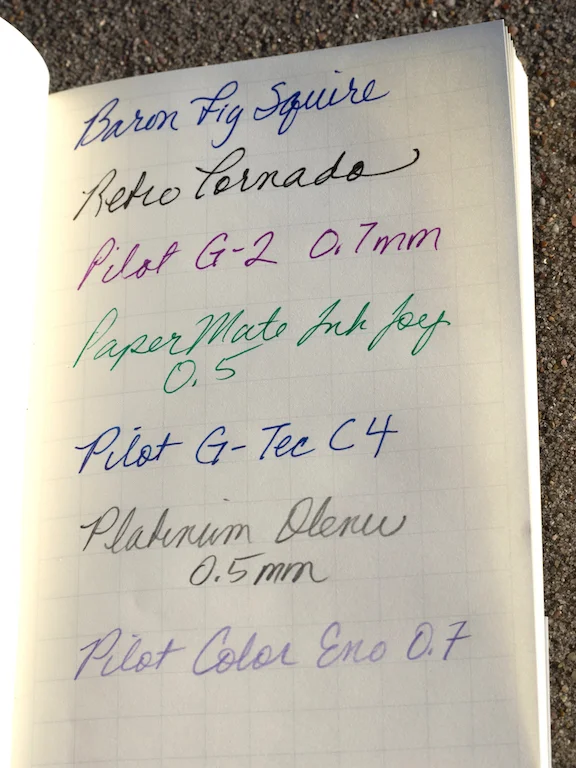 Baron Fig Squire
Retro Tornado
Pilot G-2 0.7mm
PaperMate Ink Joy
0.5
Pilot G-Tec C4
Platinum Olenu
0.5mm
Pilot Color Eno 0.7